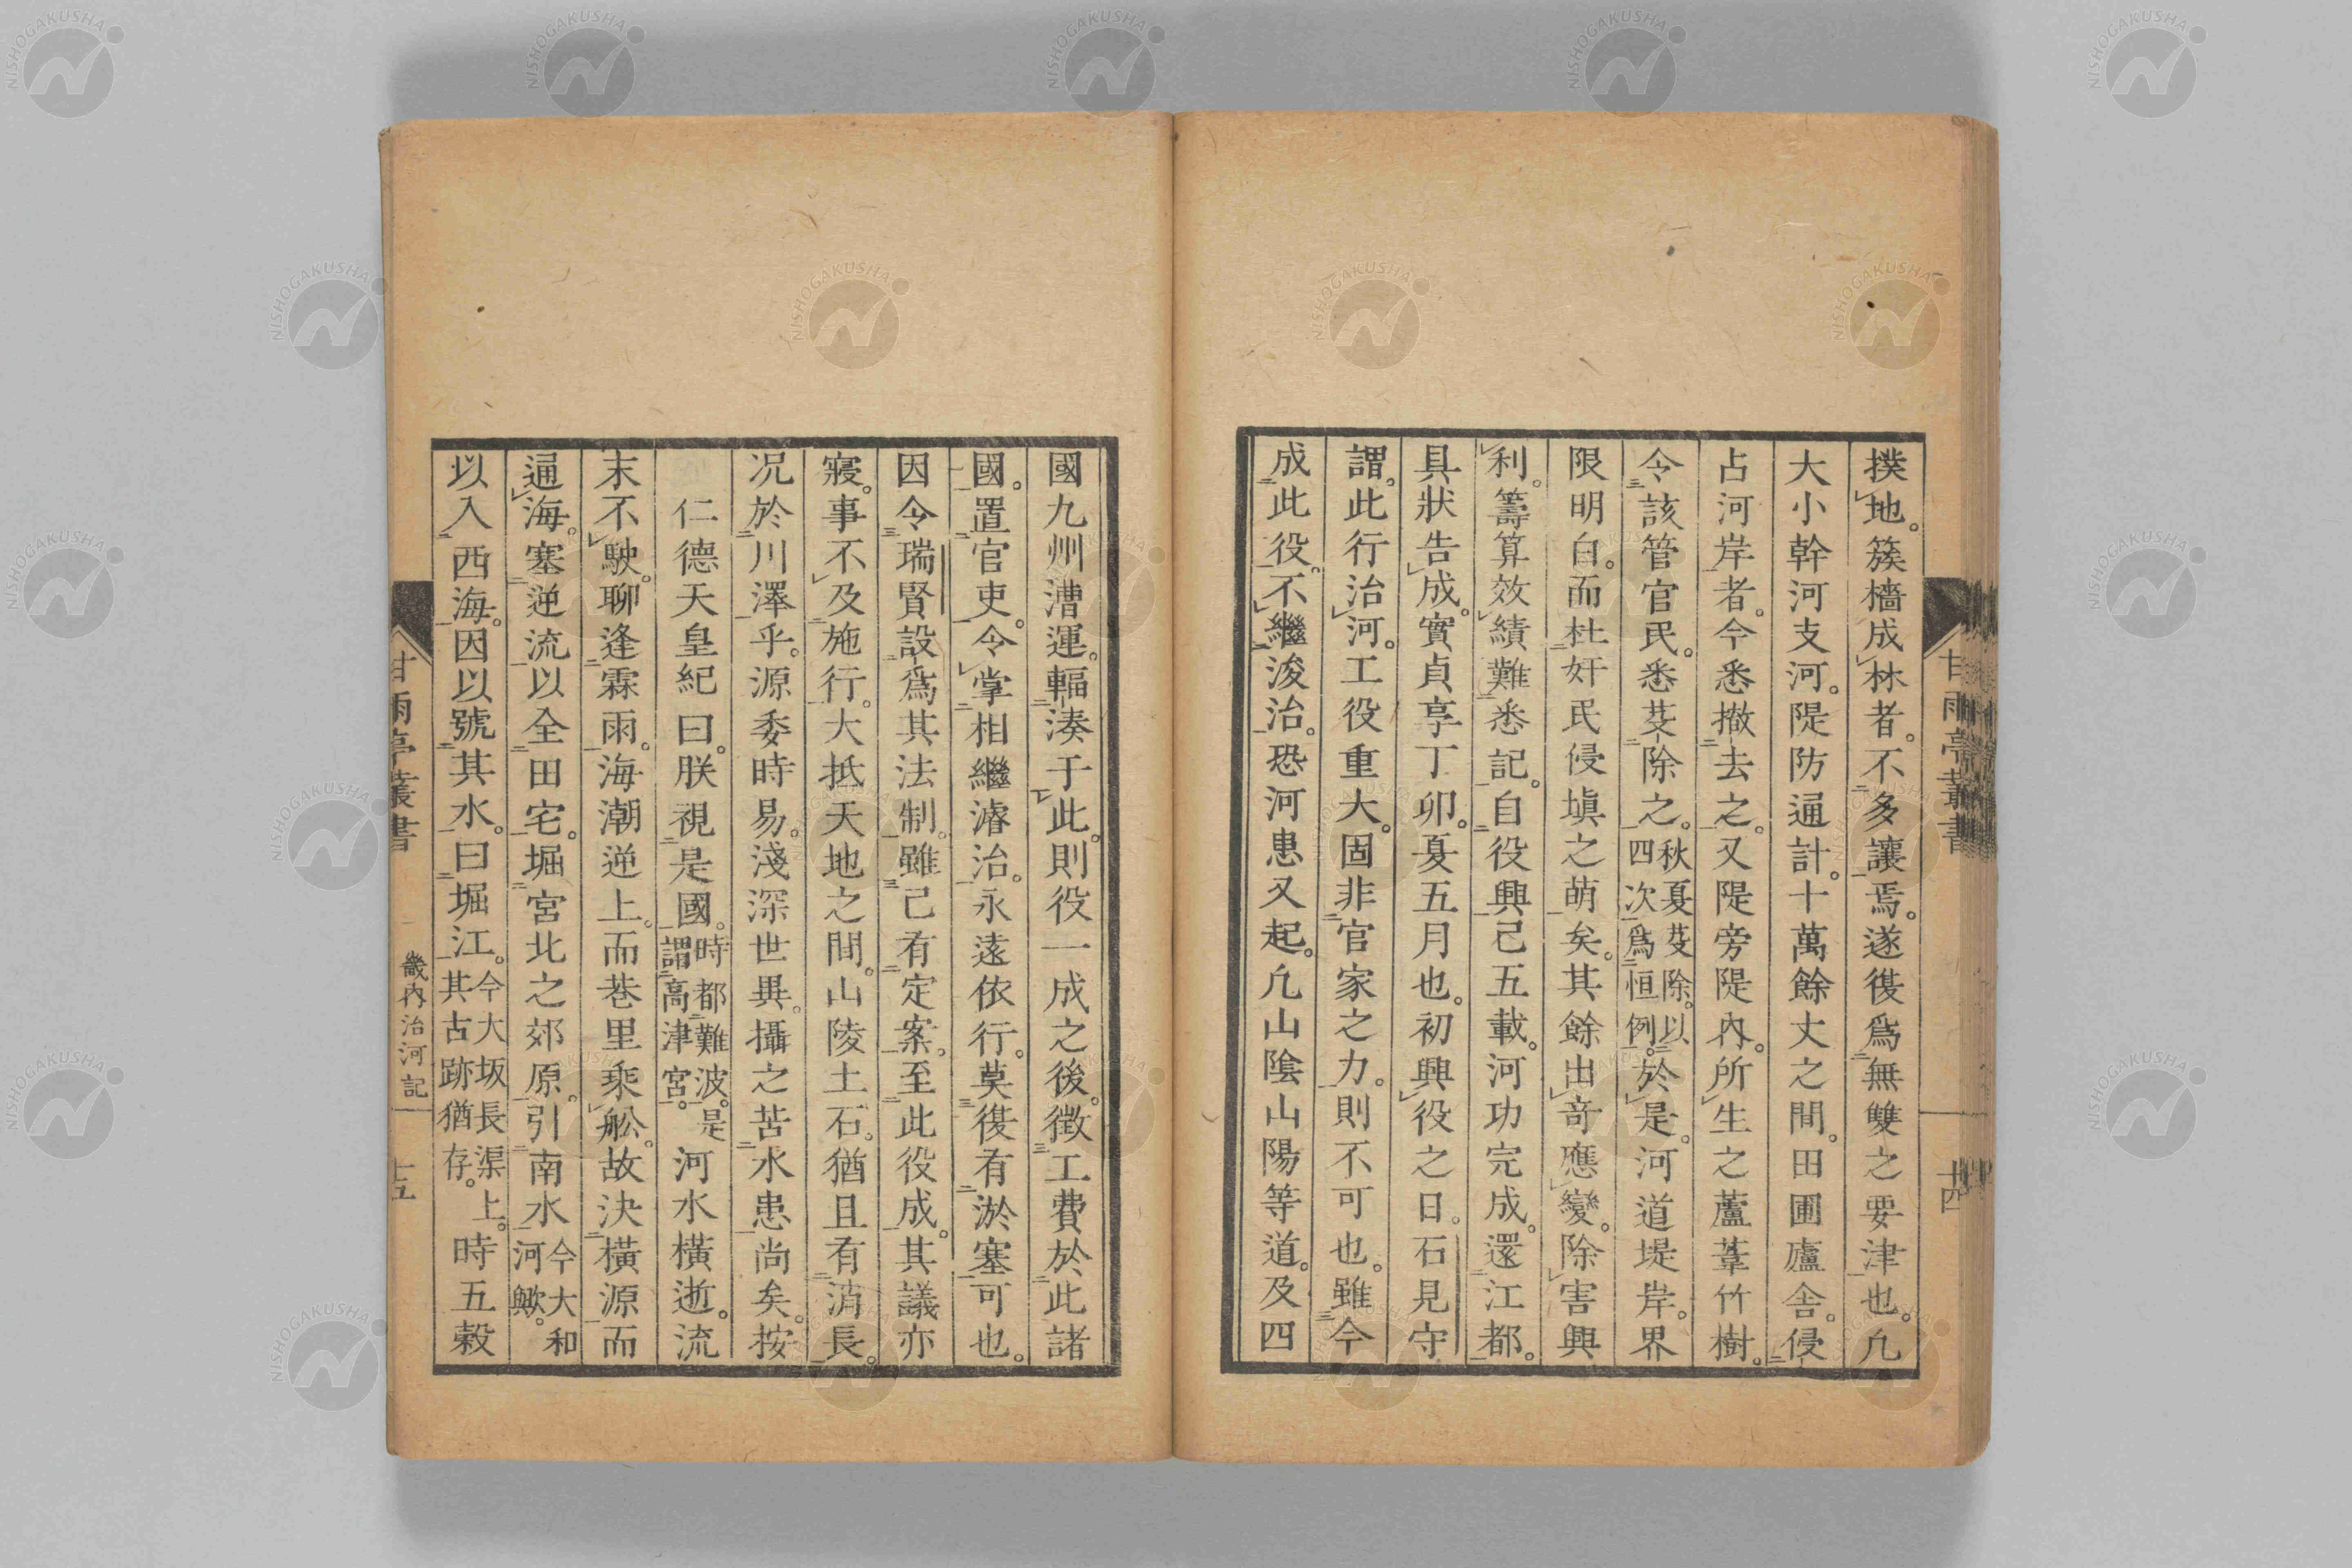 撲地。簇檣成林者。不多讓焉。遂復爲無雙之要津也。凢
大小幹河支河。隄防通計。十萬餘丈之間。田圃廬舎。侵
占河岸者。今悉撤去之。又隄旁隄內。所生之蘆葦竹樹。
令該管官民。悉芟除之。秋夏芟除。以四次爲恒例。於是。河道堤岸。界
限明白。而杜奸民侵塡之萌矣。其餘出奇應變。除害興
利。籌算效績難悉記。自役興已五載。河功完成。還江都。
具狀告成。實貞享丁卯。夏五月也。初興役之日。石見守
謂。此行治河。工役重大。固非官家之力。則不可也。雖今
成此役。不繼浚治。恐河患又起。凢山陰山陽等道。及四
甘雨亭叢書
十四
國九州漕運。輻湊于此。則役一成之後。徵工費於此諸
國。置官吏。令掌相繼濬治。永遠依行。莫復有淤塞可也。
因令瑞賢設爲其法制。雖已有定案。至此役成。其議亦
寢。事不及施行。大抵天地之間。山陵土石。猶且有消長。
况於川澤乎。源委時易。淺深世異。攝之苦水患尚矣。按
仁德天皇紀曰。朕視是國。時都難波。是謂高津宮。河水橫逝。流
末不駛。聊逢霖雨。海潮逆上。而巷里乘舩。故決橫源而
通海。塞逆流以全田宅。堀宮北之郊原。引南水今大和河歟。
以入西海。因以號其水。曰堀江。今大坂長渠上。其古跡猶存。時五穀
甘雨亭叢書
畿內治河記
十五
NISHOGAKUSHA